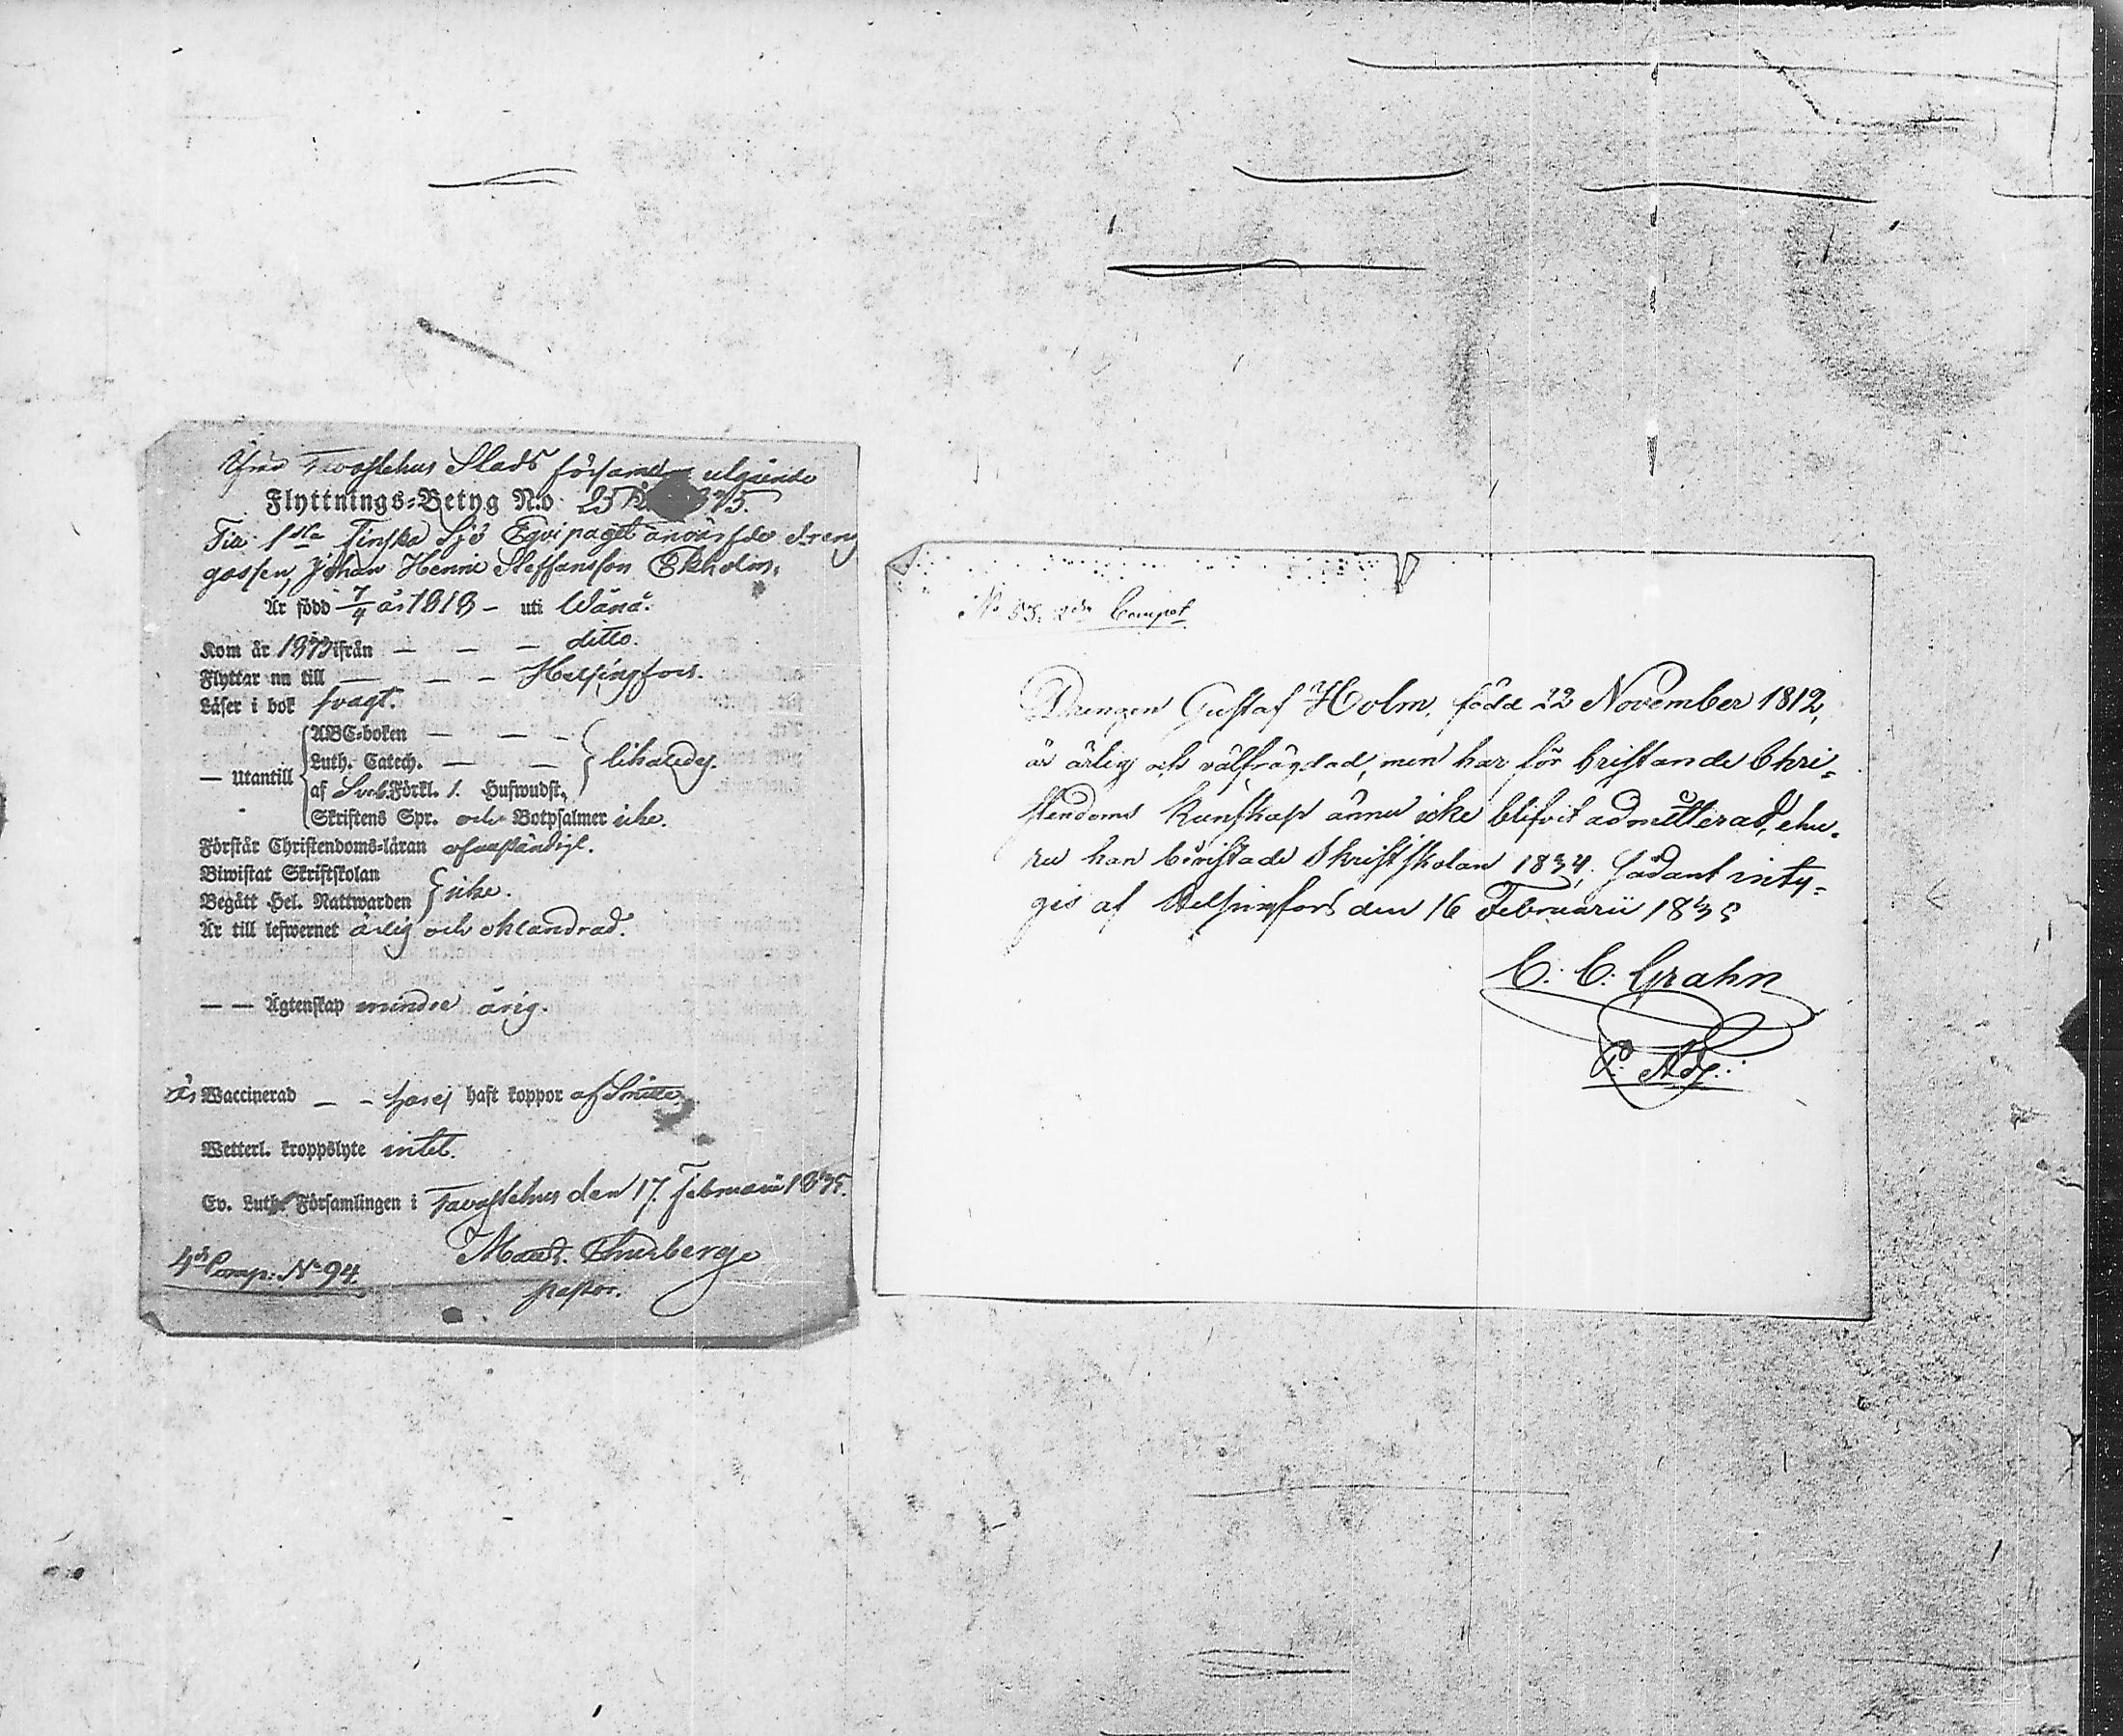 Från Tavastehus Stads församling utgående
Flyttnings-Betyg N:o 25 1835.
Till 1sta Finska Sjö Equipaget anvärfde dreng
gossen, Johan Henric Steffansson Ekholm,
Är född 7/4 år 1818 - uti Wånå.
Kom år ifrån — — — ditto.
Flyttar nu till — — — Helsingfors.
Läser i bok svagt.
— Utantill
ABC-boken — — —
Luth. Catech. — — likaledes.
af Sveb. Förkl. 1. Hufwudst.
Skriftens Spr. och Botpsalmer icke.
Förstår Christendoms-läran ofullständigt.
Biwistat Skriftskolan
Begått Hel. Nattwarden icke.
Är till lefwernet ärlig och oklandrad.
— — Ägtenskap minderårig.
är Waccinerad — — haft koppor
Wetterl. kroppslyte intet.
Ev. Luth. Församlingen i Tavastehus den 17. Februarii 1835.
Thurberg
pastor.
4de Comp: No 94.
No 53. 2dra Compot
Drengen Gustaf Holm, född 22 November 1812,
är ärlig och välfrägdad, men har för bristande Chri-
stendoms kunskap ännu icke blifvit admitterad, ehu-
ru han bevistade Skriftskolan 1834; sådant inty-
gis af Helsingfors den 16 Februarii 1835
C. C. Grahn
P. Adj.